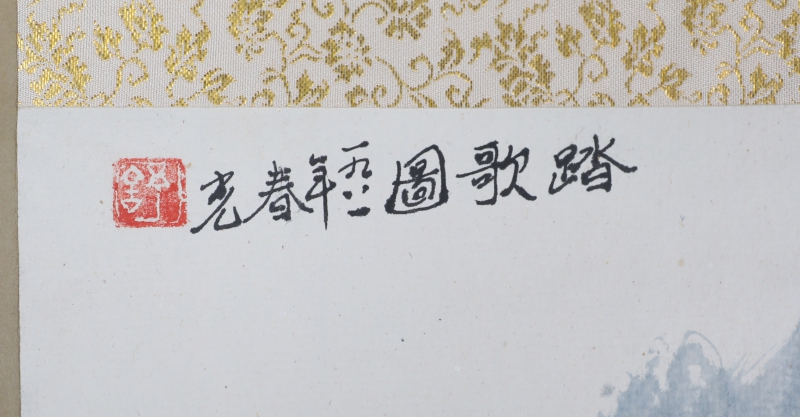 踏歌圖一九八一年春光
舒